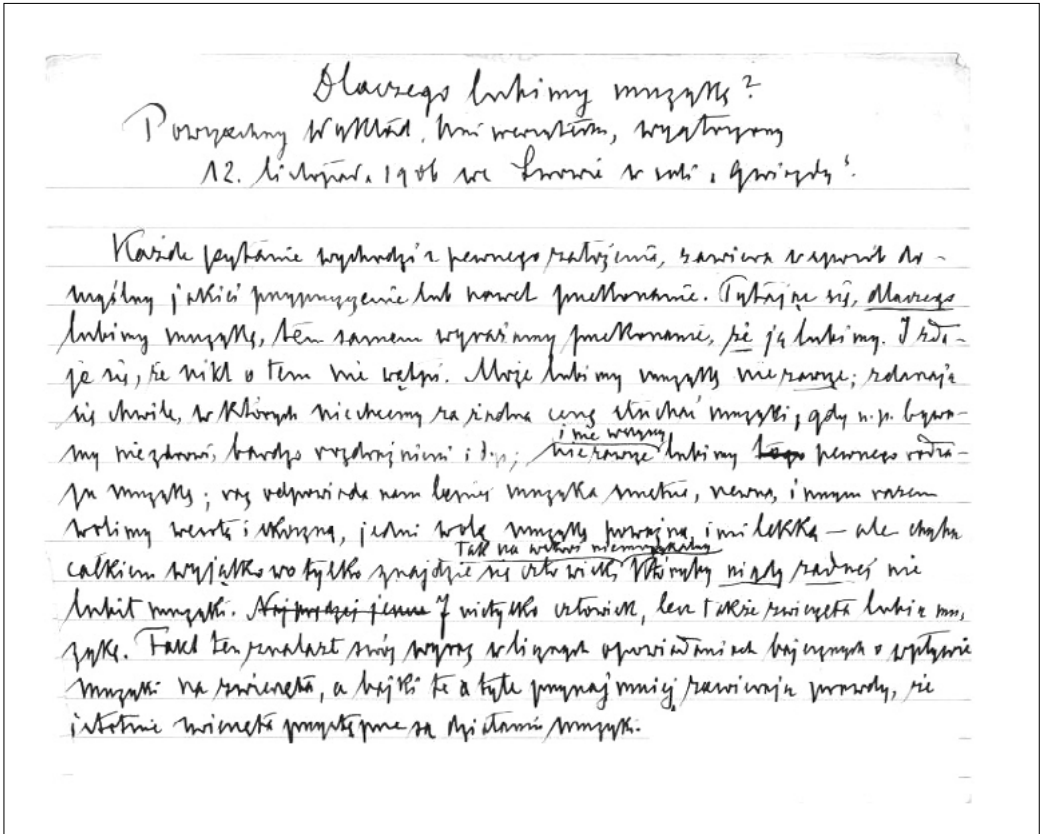 Dlaczego lubimy muzykę?
Powszechny Wykład Uniwersytecki, wygłoszony
12. listopada 1906 we Lwowie w sali „Gwiazdy".
Każde pytanie wychodzi z pewnego założenia, zawiera w sposób do-
myślny jakieś przypuszczenie lub nawet przekonanie. Pytając się, dlaczego
lubimy muzykę, tem samem wyrażamy przekonanie, że ją lubimy. I zda-
je się, że nikt o tem nie wątpi. Może lubimy muzykę nie zawsze; zdarzają
się chwile, w których nie chcemy za żadną cenę słuchać muzyki, gdy n.p. bywa-
my niezdrowi, bardzo rozdrażnieni i t.p.; nie zawsze i nie wszyscy lubimy tego pewnego rodza-
ju muzykę; raz odpowiada nam lepiej muzyka smętna, rzewna, innym razem
wolimy wesołą i skoczną, jedni wolą muzykę poważną, inni lekką — ale chyba
całkiem wyjątkowo tylko znajdzie się człowiek tak na wskroś niemuzykalny, któryby nigdy żadnej nie
lubił muzyki. I nietylko człowiek, lecz także zwierzęta lubią mu-
zykę. Fakt ten znalazł swój wyraz w licznych opowiadaniach bajecznych o wpływie
muzyki na zwierzęta, a bajki te o tyle przynajmniej zawierają prawdy, że
istotnie zwierzęta przystępne są działaniu muzyki.